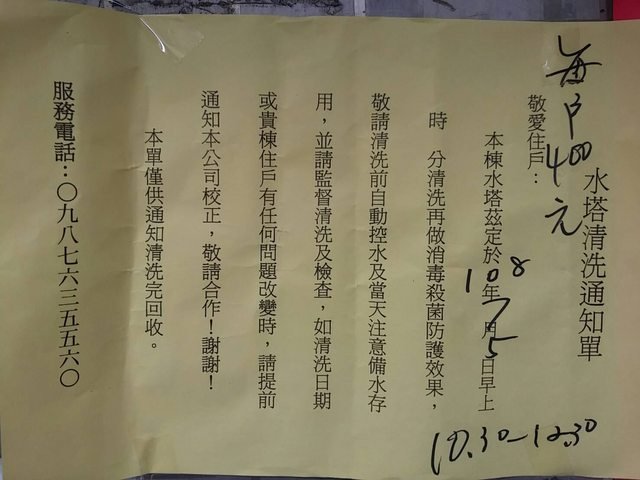 每戶400元
水塔清洗通知單
敬愛住戶：
本棟水塔茲定於108年7月5日早上
10.30-12.30
時　分清洗再做消毒殺菌防護效果，
敬請清洗前自動控水及當天注意備水存
用，並請監督清洗及檢查，如清洗日期
或貴棟住戶有任何問題改變時，請提前
通知本公司校正，敬請合作！謝謝！
本單僅供通知清洗完回收。
服務電話：〇九八七六三五五六〇